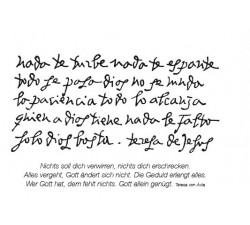 nada te turbe nada te espante
todo se pasa dios no se muda
la paciencia todo lo alcanza
quien a dios tiene nada le falta
solo dios basta. teresa de Jesus
Nichts soll dich verwirren, nichts dich erschrecken.
Alles vergeht, Gott ändert sich nicht. Die Geduld erlangt alles.
Wer Gott hat, dem fehlt nichts. Gott allein genügt. Teresa von Avila